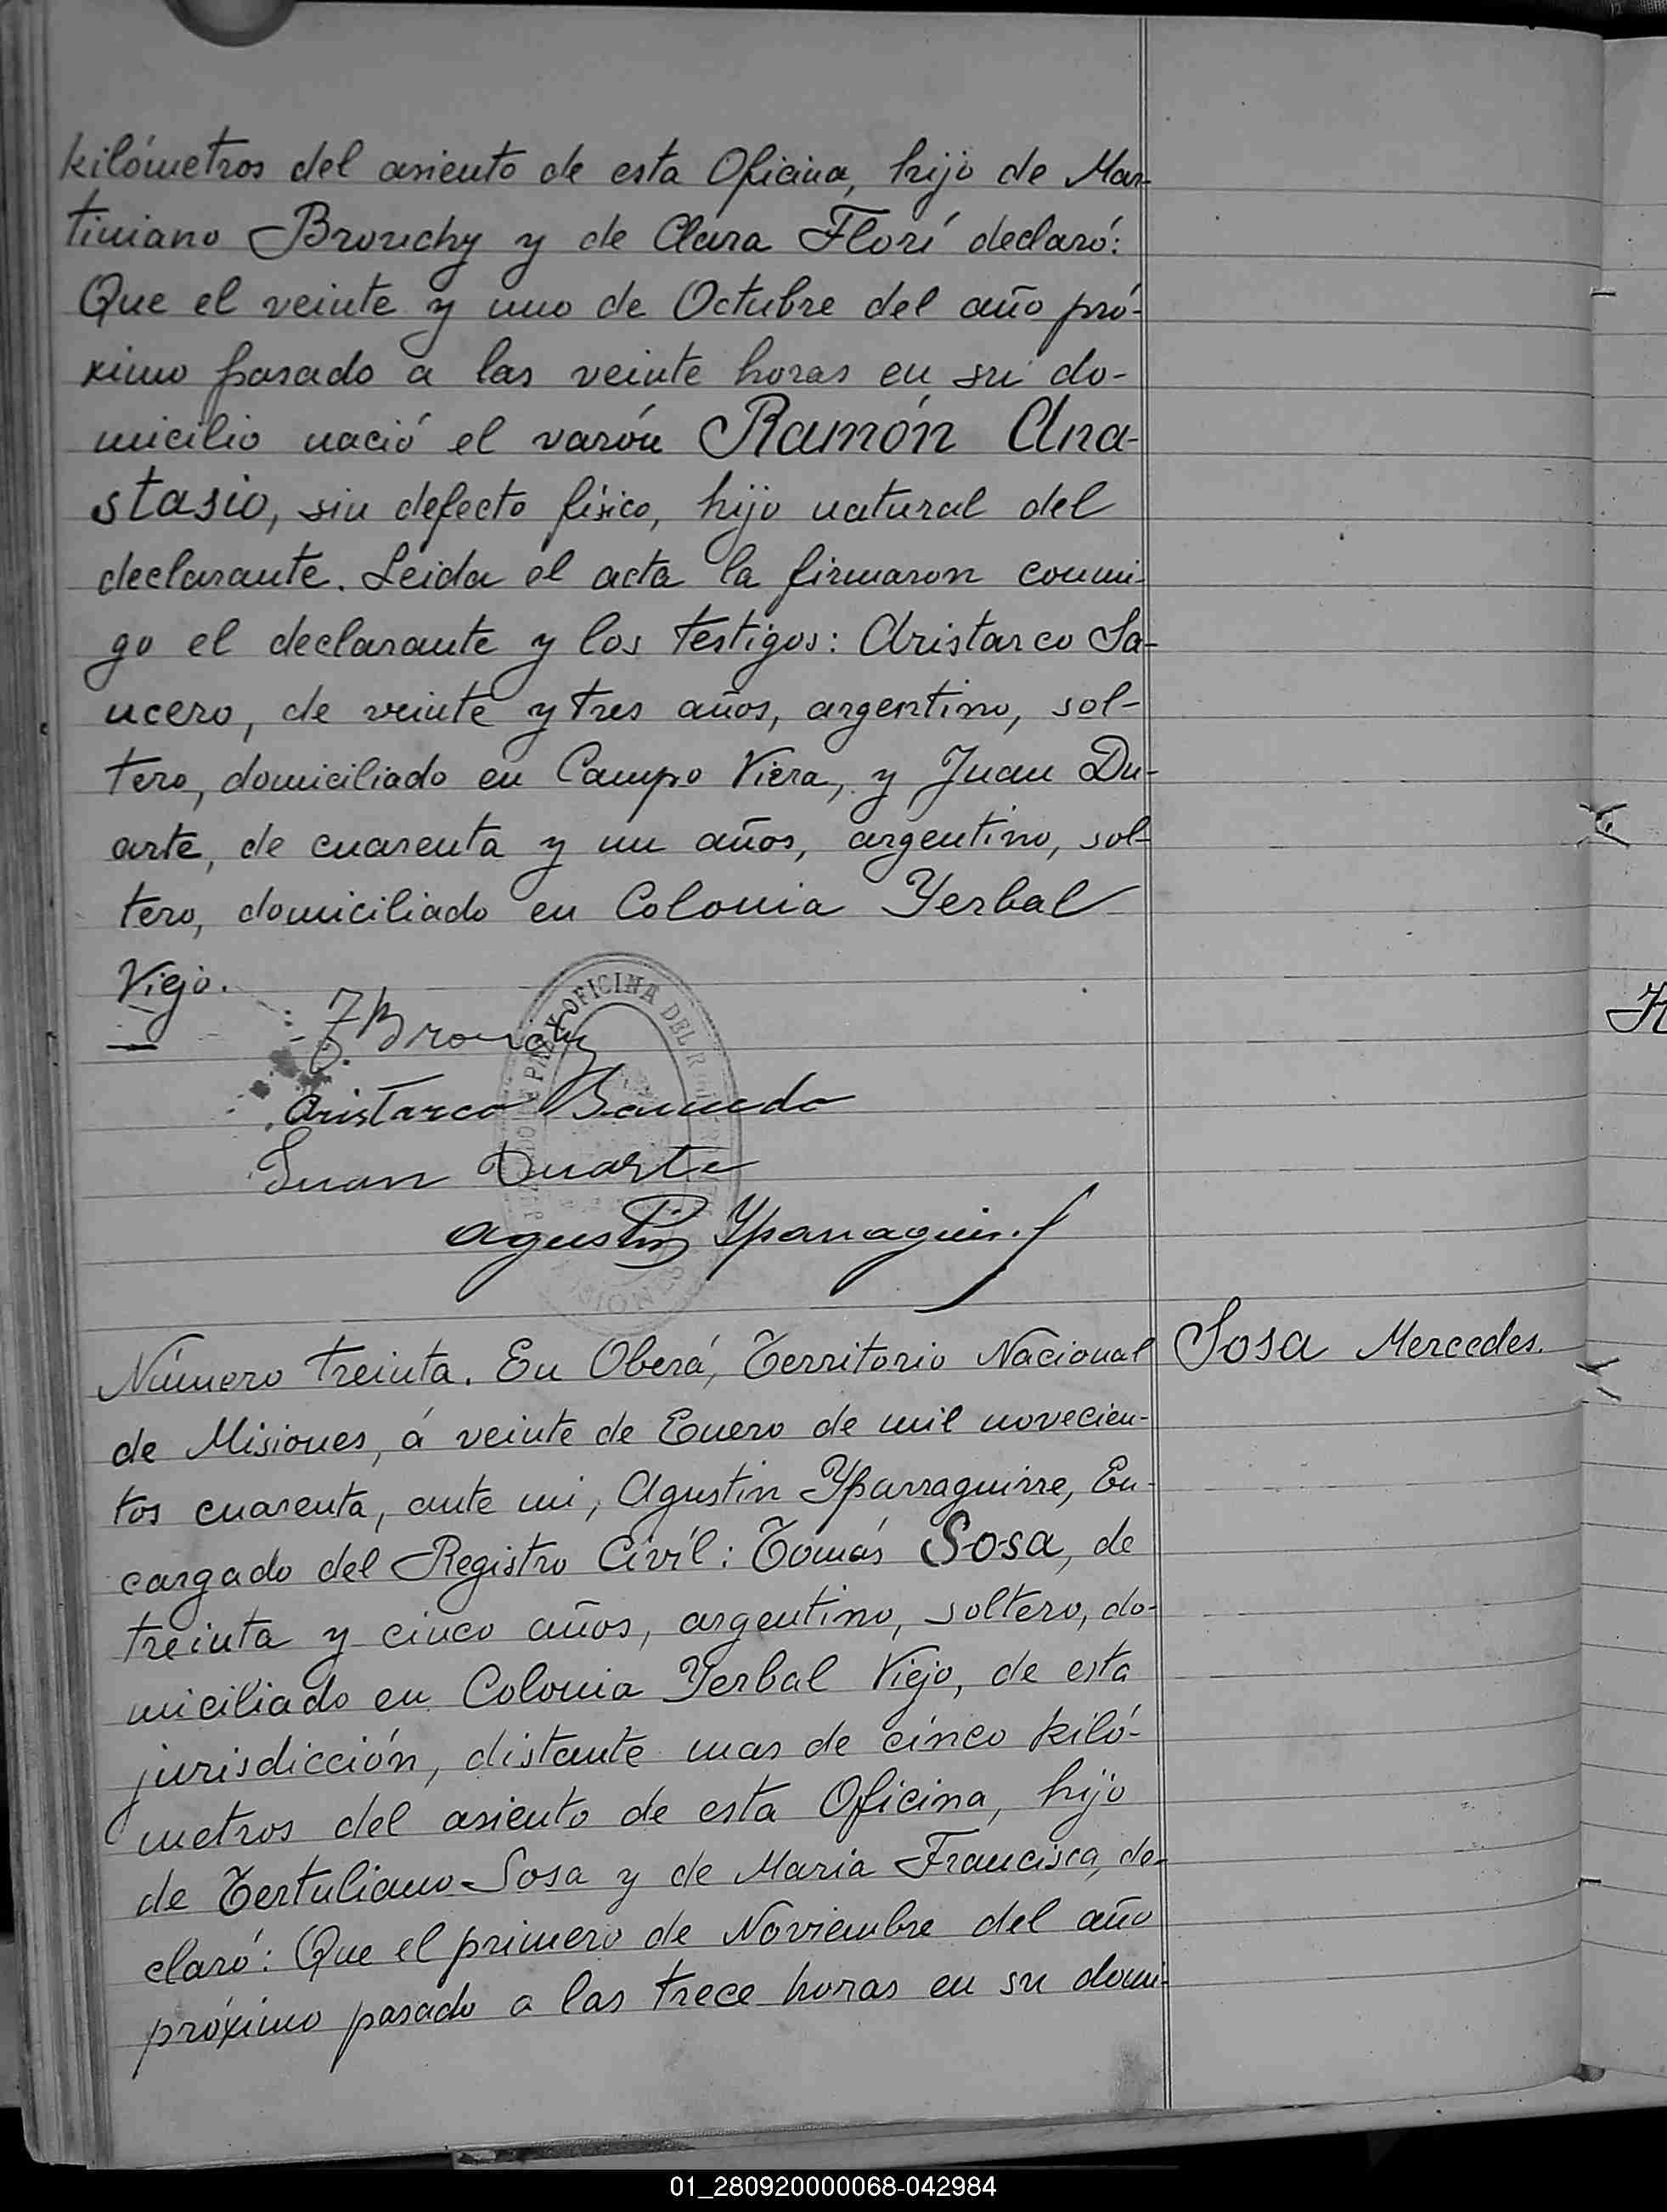 kilómetros del asiento de esta Oficina, hijo de Mar-
tiniano Brouchy y de Clara Florí declaró:
Que el veinte y uno de Octubre del año pró-
ximo pasado a las veinte horas en su do-
micilio nació el varón Ramón Ana-
stasio, sin defecto físico, hijo natural del
declarante. Leida el acta la firmaron conmi-
go el declarante y los testigos: Aristarco Sa-
ucero, de veinte y tres años, argentino, sol-
tero, domiciliado en Campo Viera, y Juan Du-
arte, de cuarenta y un años, argentino, sol-
tero, domiciliado en Colonia Yerbal
Viejo.
Brouchy
OFICINA DEL
Aristarco
Juan Duarte
Agustin Yparraguirre
Número treinta. En Oberá, Territorio Nacional
Sosa Mercedes.
de Misiones, á veinte de Enero de mil novecien-
tos cuarenta, ante mi, Agustin Yparraguirre, En-
cargado del Registro Civíl: Tomás Sosa, de
treinta y cinco años, argentino, soltero, do-
miciliado en Colonia Yerbal Viejo, de esta
jurisdicción, distante mas de cinco kiló-
metros del asiento de esta Oficina, hijo
de Tertuliano Sosa y de Maria Francisca, de-
claró: Que el primero de Noviembre del año
próximo pasado a las trece horas en su domi-
01_280920000068-042984